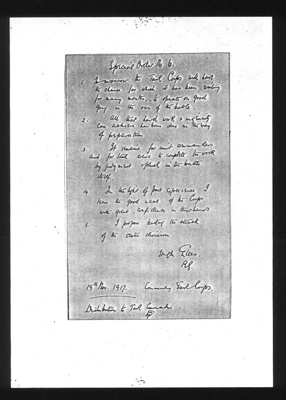 Special Order No 6.
1. Tomorrow the Tank Corps will have
the chance for which it has been waiting
for many months, – to operate on good
going in the van of the battle.
2. All that hard work & ingenuity
can achieve has been done in the way
of preparation
3. It remains for unit commanders
and for tank crews to complete the work
by judgment & pluck in the battle
itself.
4. In the light of past experience I
leave the good name of the Corps
with great confidence in their hands
5. I propose leading the attack
of the centre division
Hugh Elles
B.G.
19th Nov. 1917. Commanding Tank Corps.
Distribution to Tank Commanders